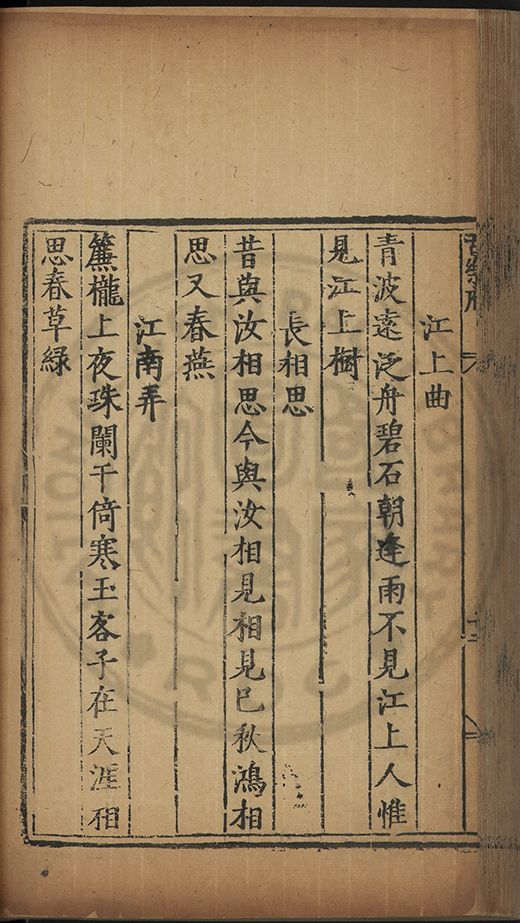 江上曲
青波遠泛舟碧石朝逢雨不見江上人惟
見江上樹
長相思
昔與汝相思今與汝相見相見已秋鴻相
思又春燕
江南弄
簾櫳上夜珠闌干倚寒玉客子在天涯相
思春草緑